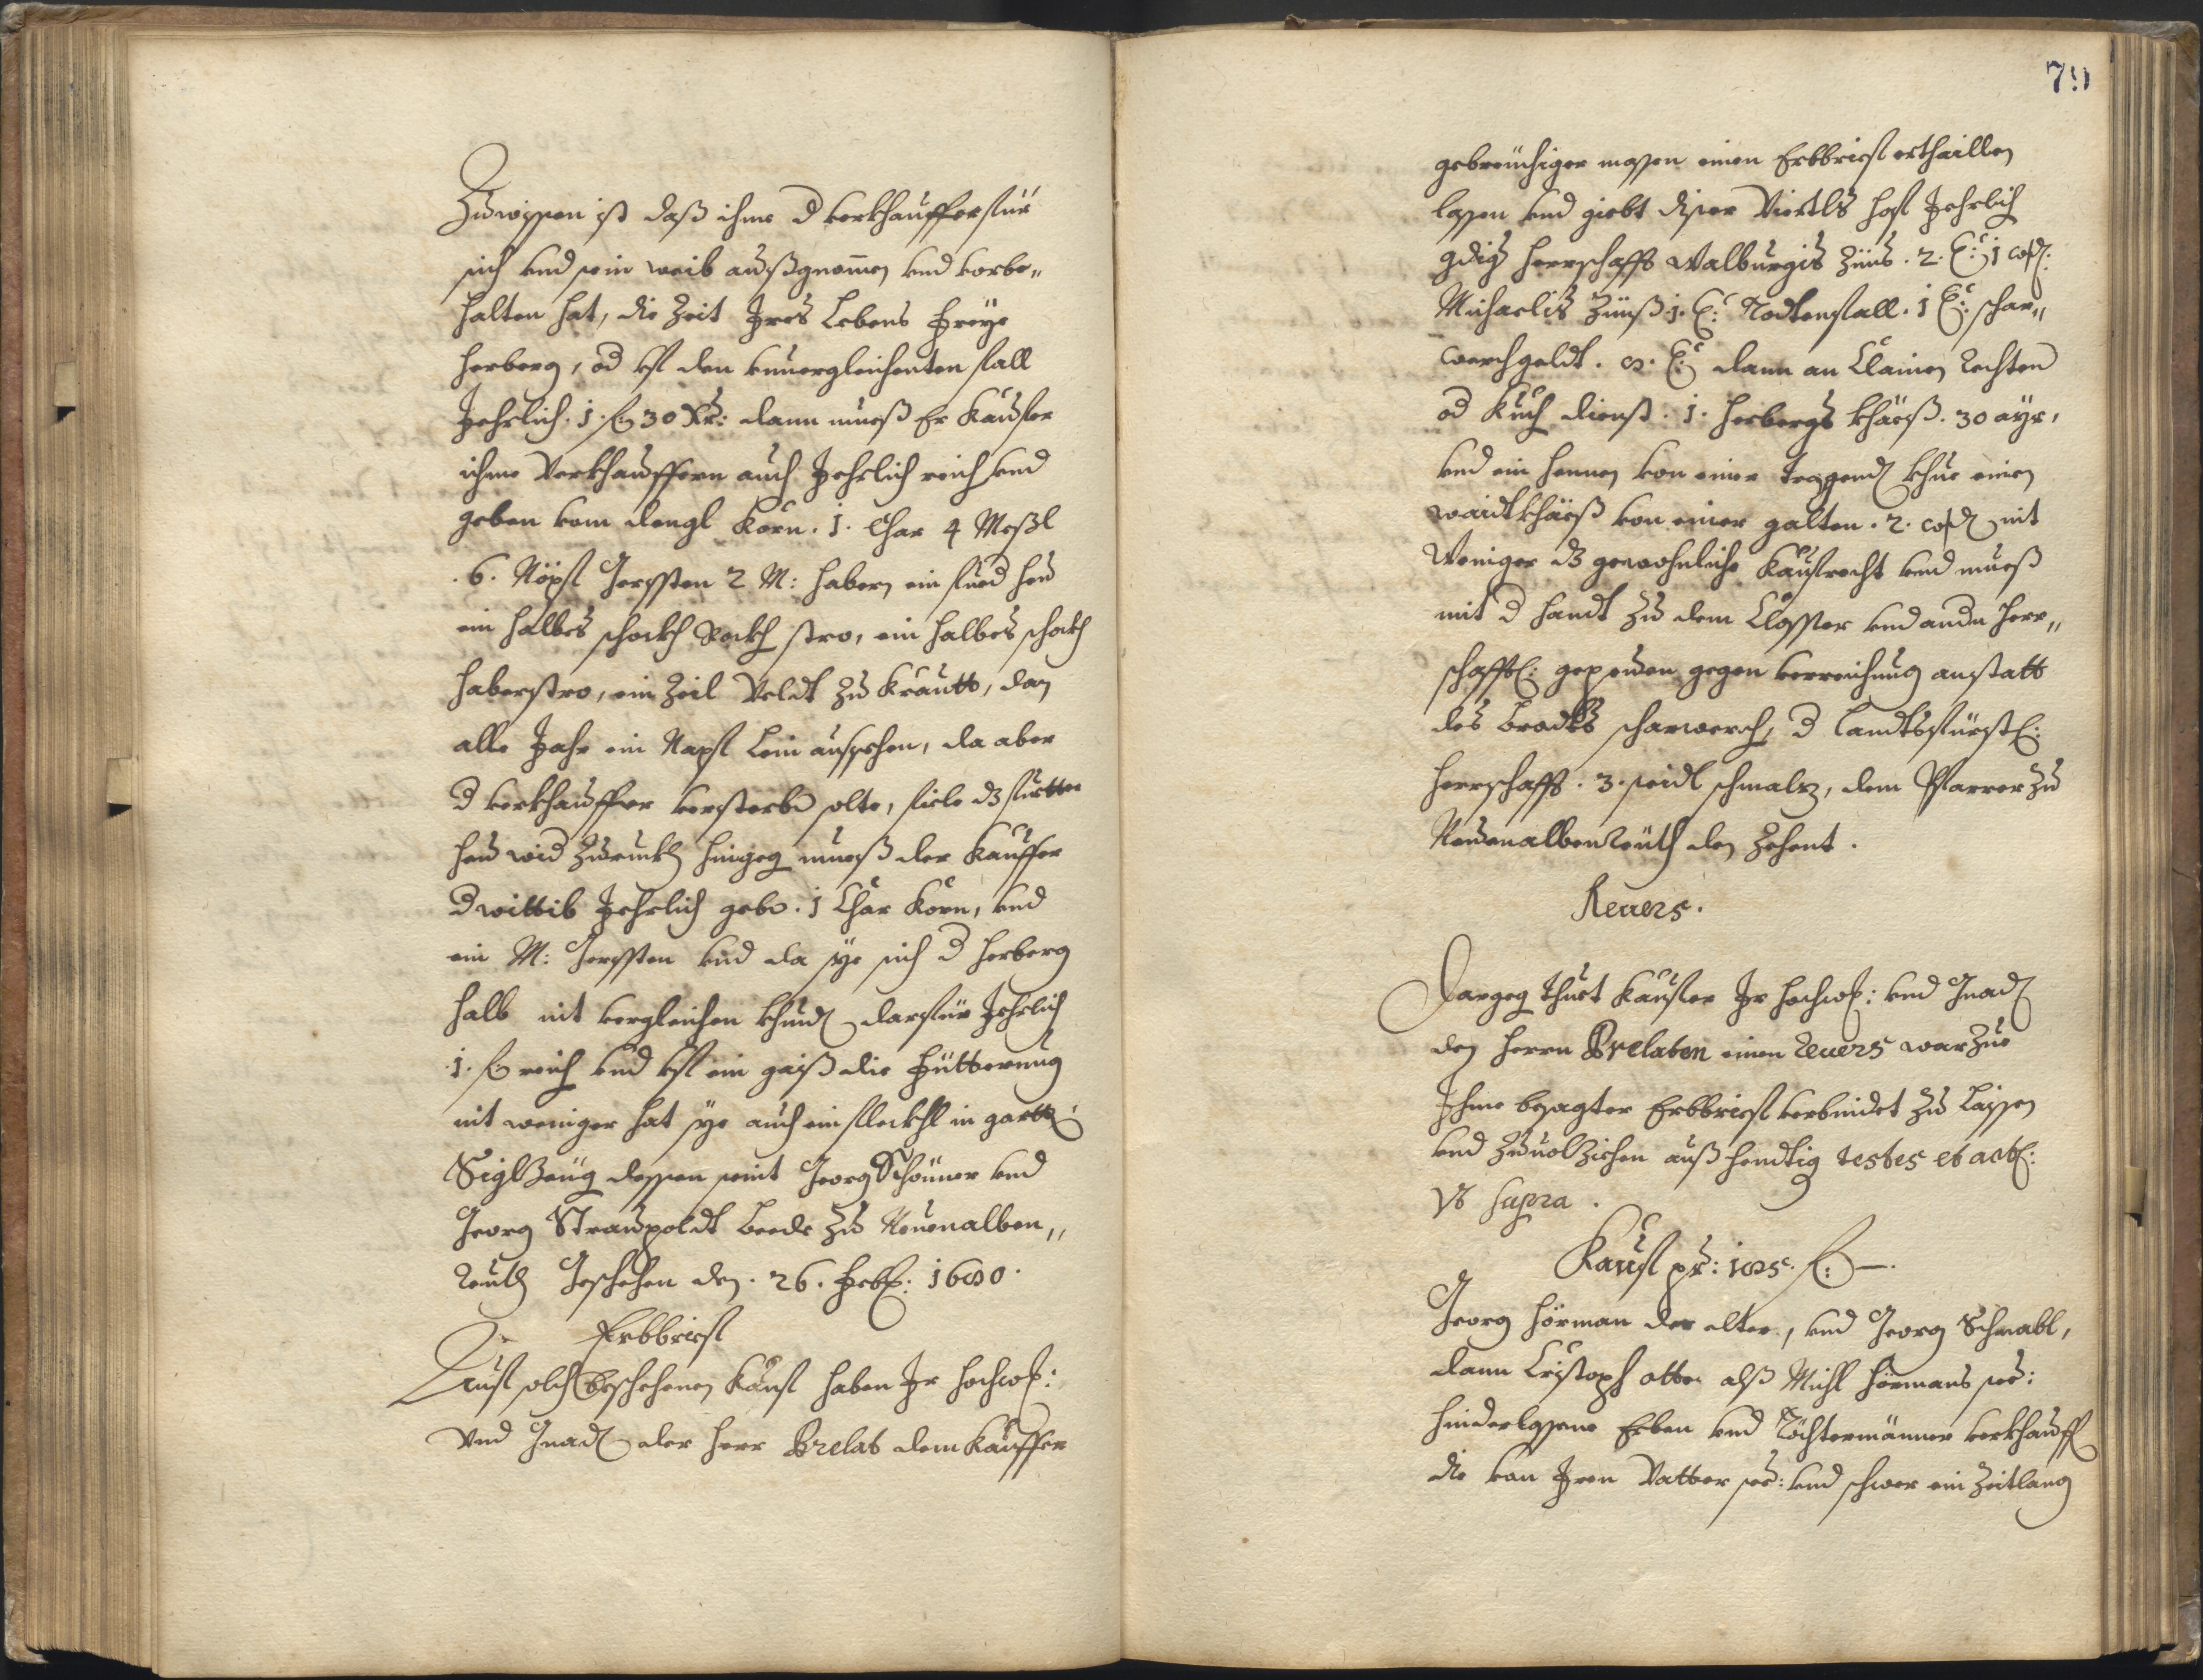 Zuwissen ist daß ihme d verkhauffer für
sich und sein weib außgnomen und vorbe„
halten hat, die Zeit Jres Lebens Freye
herberg, od uf den unvergleichenten fall
Jehrlich. 1. f. 30 Xr: dann mueß Er Kaufer
ihme Verkhauffern auch Jehrlich reich und
geben vom dengl Korn. 1. Char 4 Meßl
.6. Näpf Gerssten 2 M: Habern ein fued heu
ein halbes schockh Rockh stro, ein halbes schockh
haberstro, ein Zeil Veldt zu Krautt, dan
alle Jahr ein Napf Lein aussehen, da aber
d verkhauffer versterbn solte, fiele dz fuetter
heu wid Zuruckh hingeg mueß der Kauffer
d wittib Jehrlich gebn. 1 Char Korn, und
ein M: Gerssten und da sye sich d herberg
halb nit vergleichen khund darfür Jehrlich
1. f reich und uf ein gaiß die Fütterung
nit weniger hat sye auch ein fleckhl in gartt
Siglzeug dessen seint Georg Schöner und
Georg Straupoldt beede zu Neuenalben„
reuth Geschehen den. 26. Feb: 1680.
Erbbrief
Auf solch beschehenen Kauf haben Jr hochw:
Und Gnad der herr Prelat dem Kauffer
79
gebreuchiger massen einen Erbbrief erthaillen
lassen und giebt diser Viertls hof Jehrlich
gdig herrschafft Walburgis Zünß. 2. ß: 1 cos:
Michaelis Zünß. 1. ß: Todtenfall. 1 ß: schar„
werchgeldt. 8. ß dann an Clainen Rechten
od Kuch dienst. 1. herbergs khäeß. 30 ayr,
und ein hennen von einer tragend khue einen
waidtkhäeß von einer galten. 2. cos nit
Weniger dz gewohnliche Kaufrecht und mueß
mit d handt zu dem Closster und andn herr„
schafft: gepeuen gegen verreichung anstatt
des brodts scharwerch, d Landtsfürstl:
herrschafft. 3. seidl schmalz, dem Pfarrer zu
Neuenalbenreüth den Zehent.
Revers.
Dargeg thuet Kaufer Jr hochw: und Gnad
den herrn Prelaten einen Revers warzue
Jhme besagter Erbbrief verbindet zu Laissen
und zuvolziehen außhendtig testes et act:
Ut supra.
Kauf pr: 185. f: —.
Georg Hörman der elter, und Georg Schwabl,
dann Cristoph otto alß Michl Hörmans see:
hinderlassene Erben und Töchtermänner verkhauff
die von Jren Vatter see: und schwer ein Zeitlang